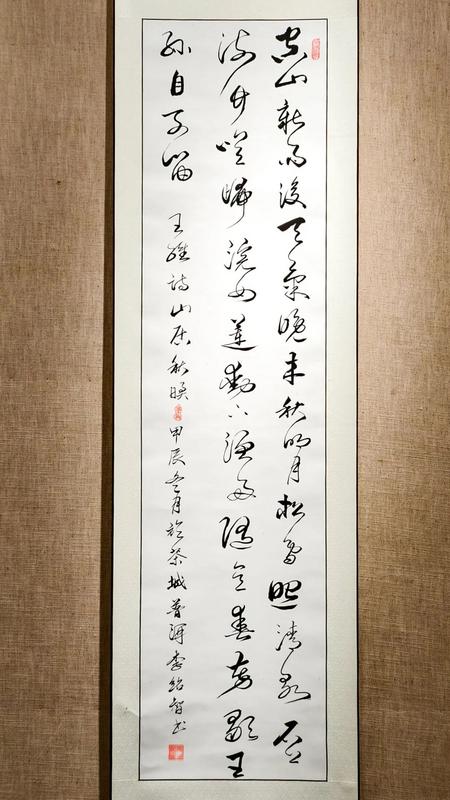 空山新雨後天氣晚来秋明月松間照清泉石上
流竹喧歸浣女蓮動下漁舟隨意春芳歇王
孫自可留 王維詩山居秋暝 甲辰冬月於茶城普洱李紹智书